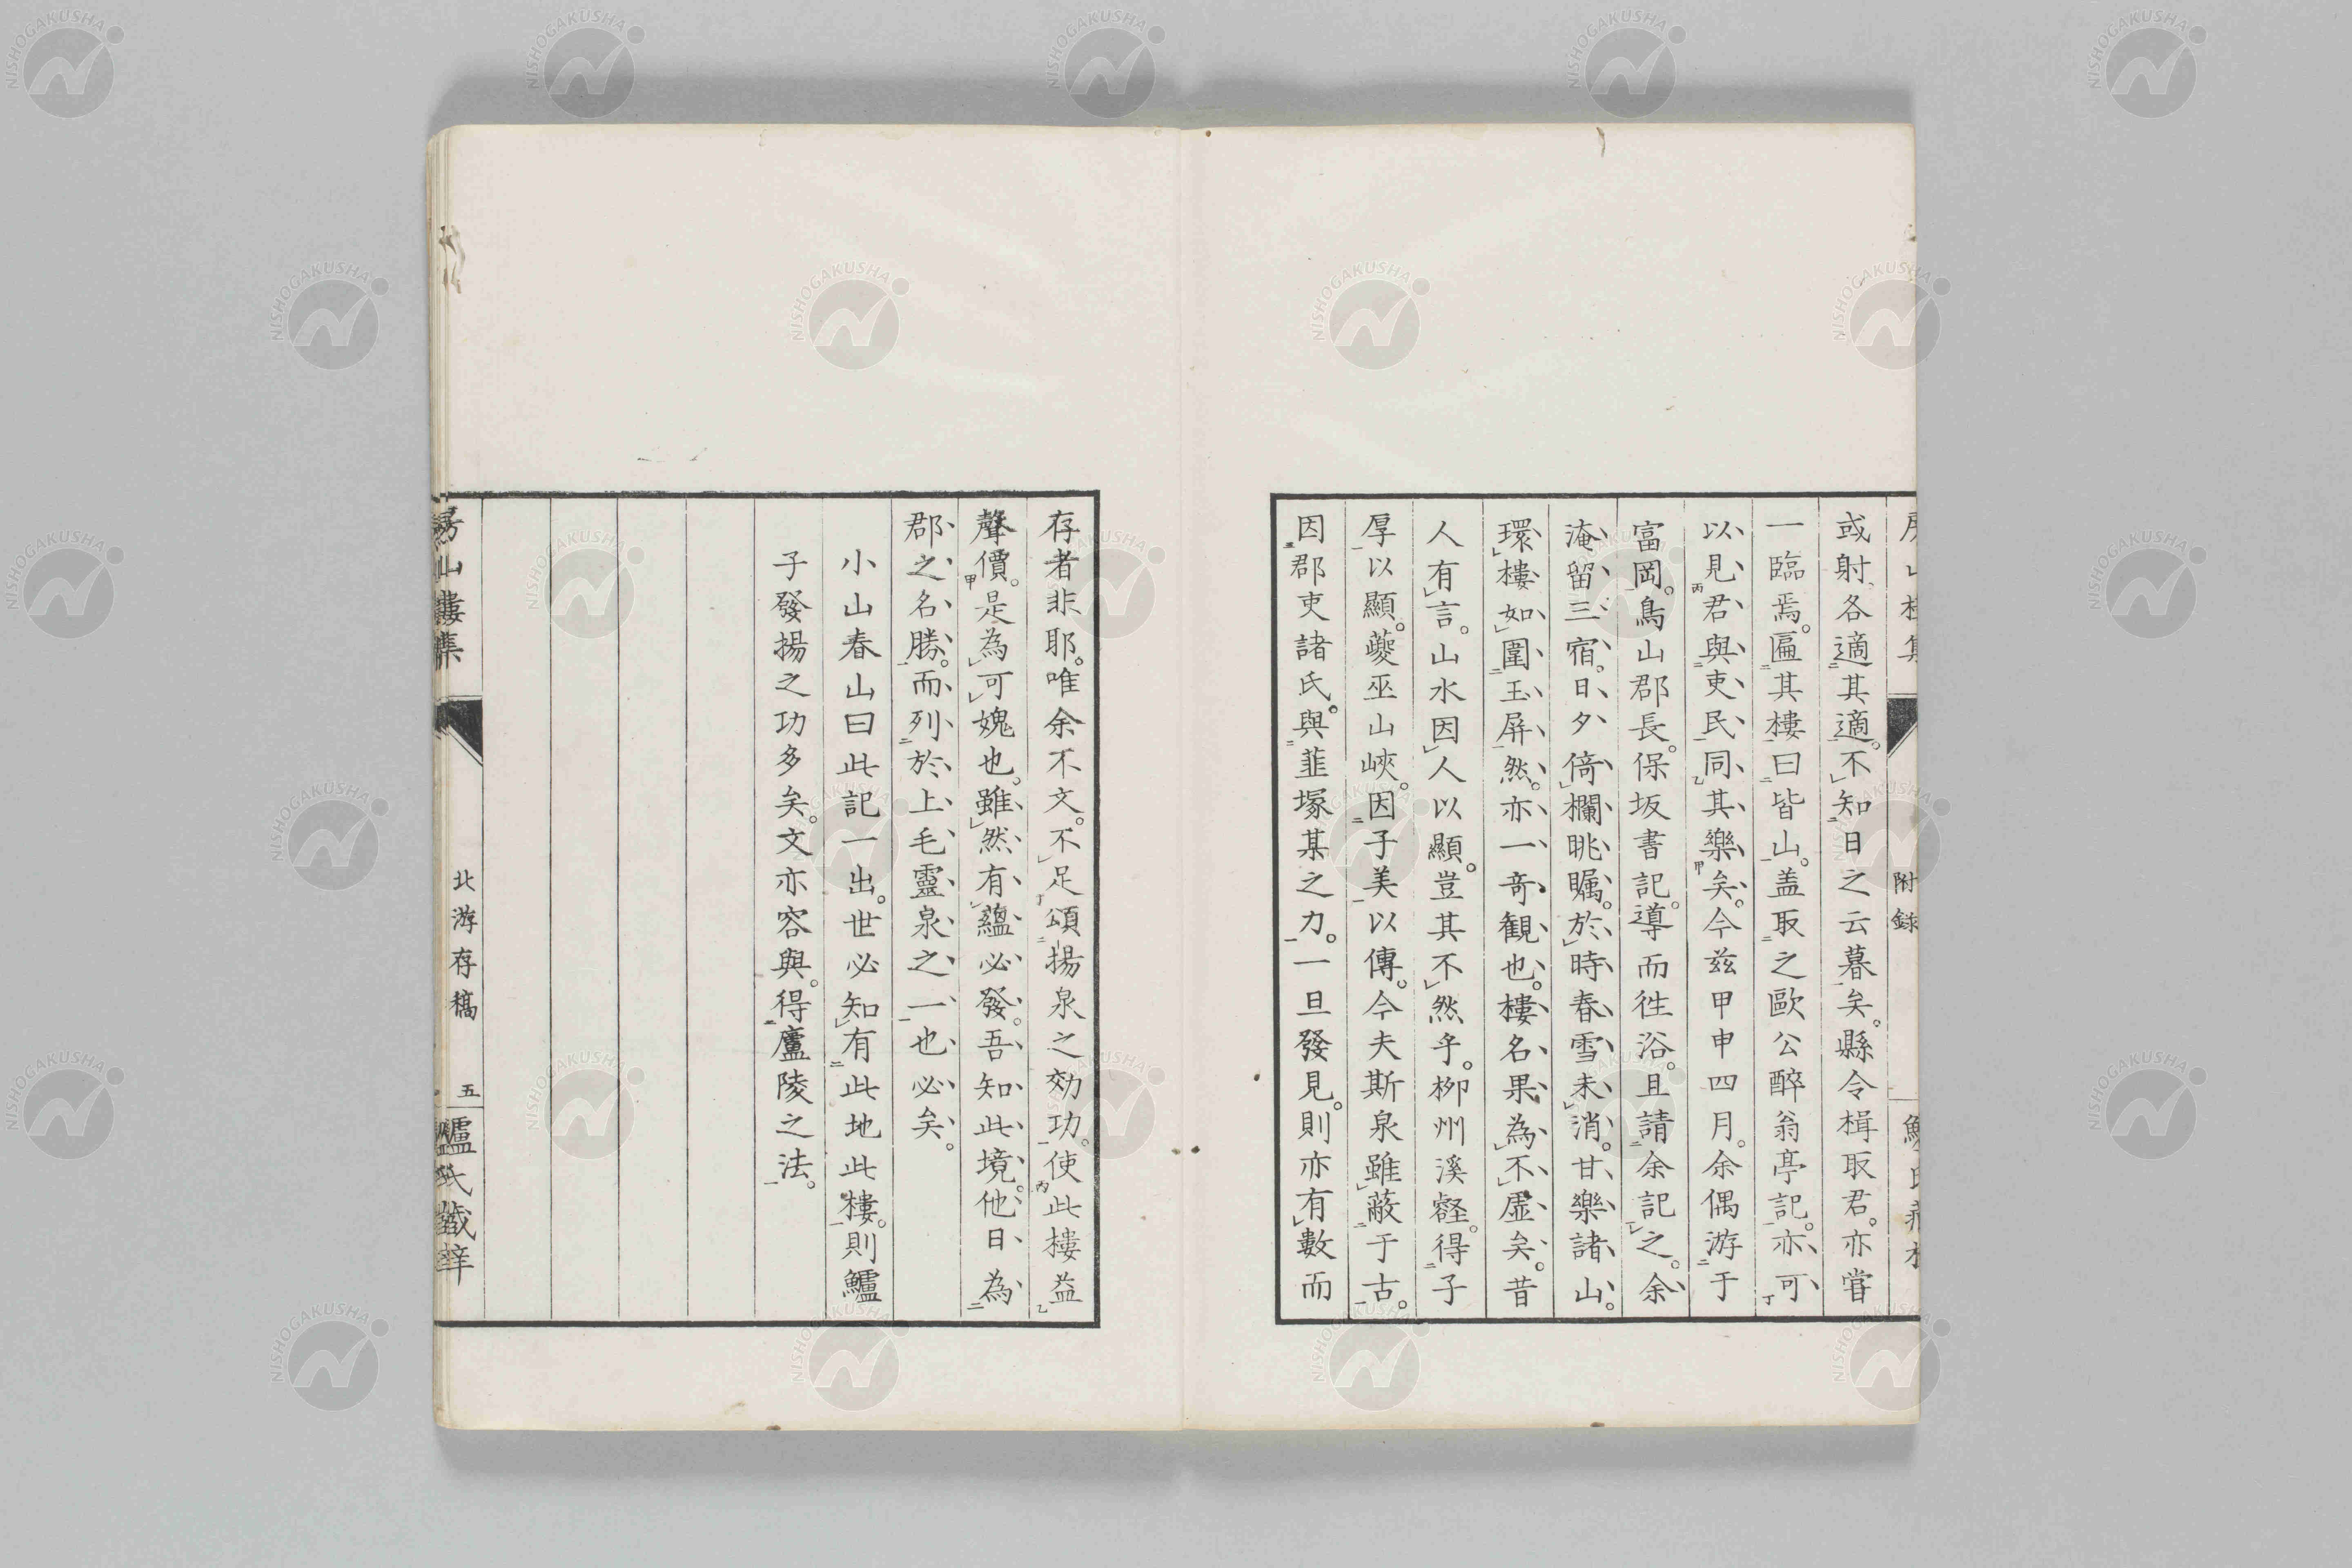 或射各適其適。不知日之云暮矣。縣令楫取君。亦嘗
一臨焉。匾其樓曰皆山。盖取之歐公醉翁亭記。亦可
以見君與吏民同其樂矣。今茲甲申四月。余偶游于
富岡。鳥山郡長。保坂書記。導而徃浴。且請余記之。余
淹留三宿。日夕倚欄眺矚。於時春雪未消。甘樂諸山。
環樓如圍玉屏然。亦一奇観也。樓名果為不虛矣。昔
人有言。山水因人以顯。豈其不然乎。柳州溪壑。得子
厚以顯。夔巫山峽。因子美以傳。今夫斯泉雖蔽于古。
因郡吏諸氏。與韮塚某之力。一旦發見。則亦有數而
存者非耶。唯余不文。不足頌揚泉之効功。使此樓益
聲價。是為可媿也。雖然有蘊必發。吾知此境。他日為
郡之名勝。而列於上毛靈泉之一也必矣。
小山春山曰此記一出。世必知有此地此樓。則鱸
子發揚之功多矣。文亦容與。得廬陵之法。
附錄
房山樓集
北游存稿
五
鱸氏藏梓